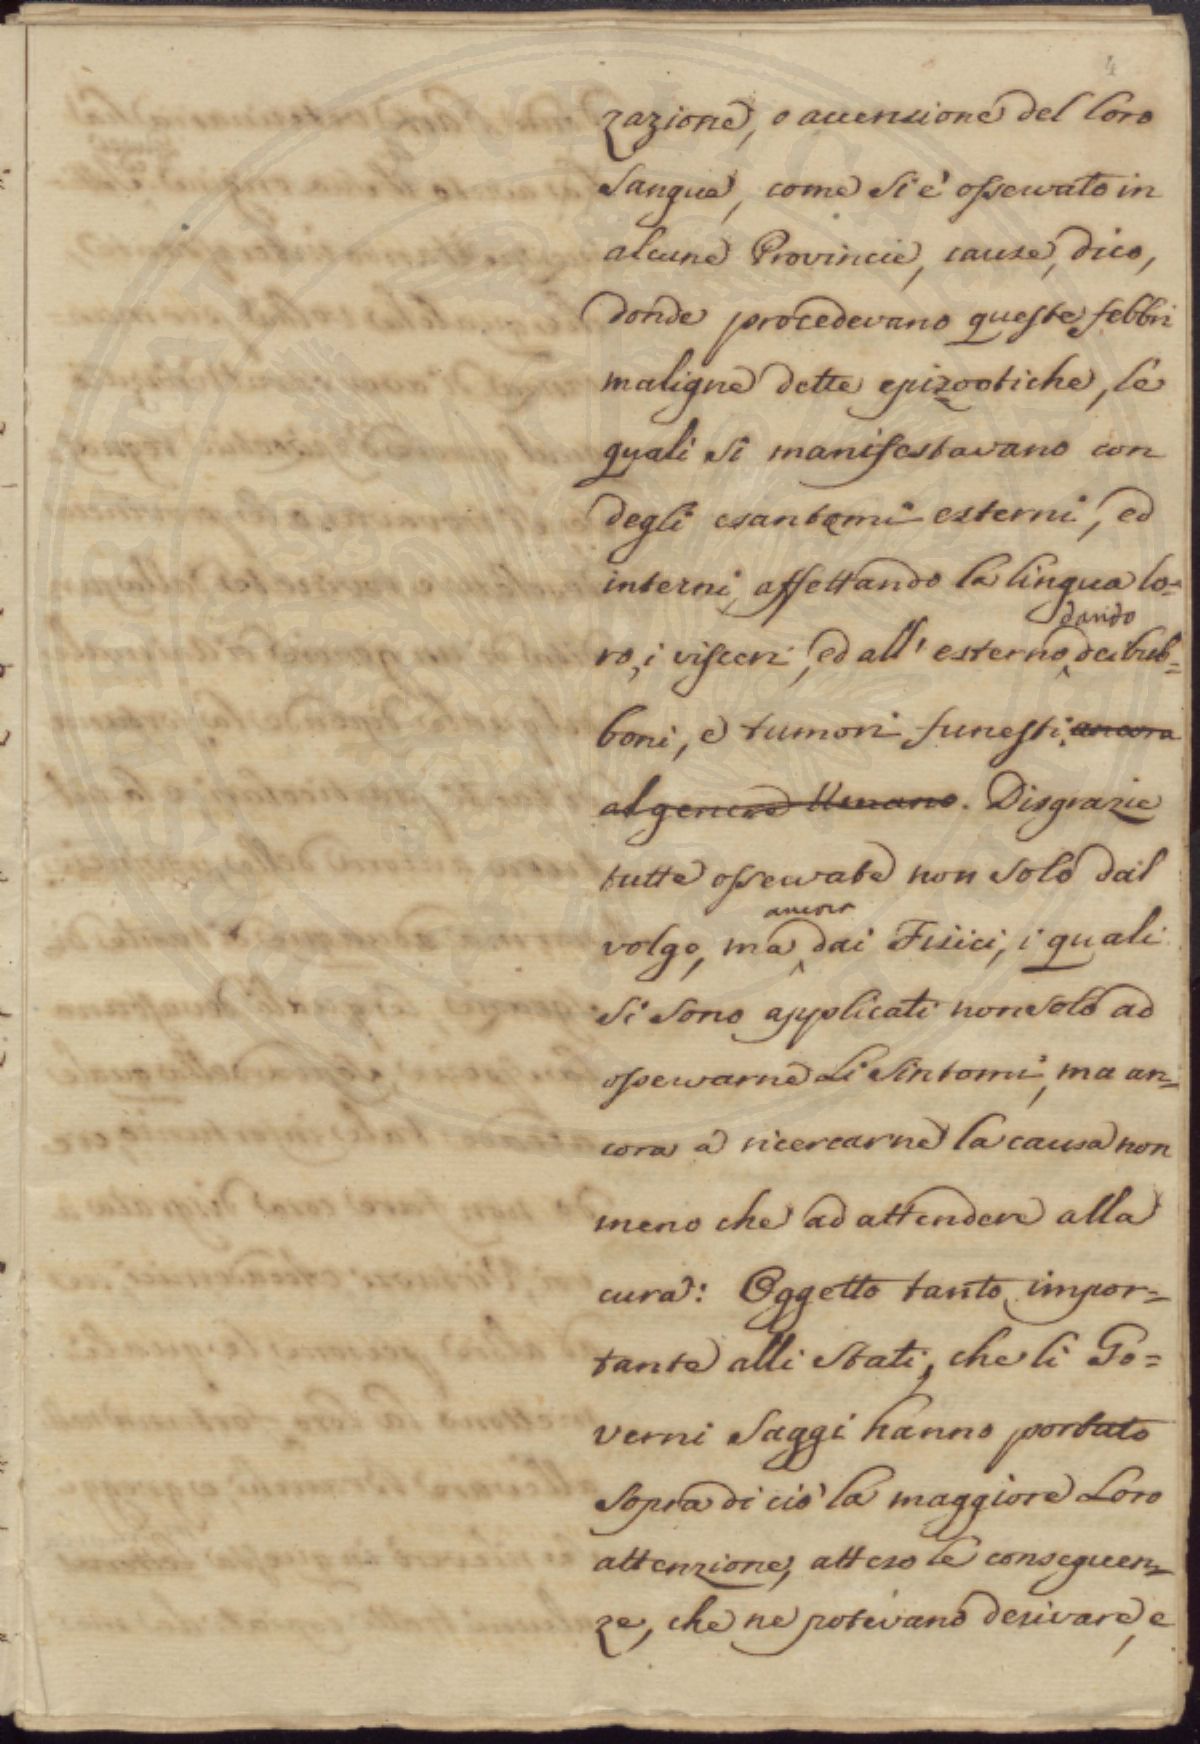 4
zazione, o accensione del loro
sangue, come si è osservato in
alcune Provincie, cause, dico,
donde procedevano queste febbri
maligne dette epizootiche, le
quali si manifestavano con
degli esantomi esterni, ed
interni, affettando la lingua lo=
dando
ro, i visceri, ed all' esterno dei bub=
boni, e tumori funesti ancora
al genere Umano. Disgrazie
tutte osservate non solo dal
ancora
volgo, ma dai Fisici, i quali
si sono applicati non solo ad
osservarne li sintomi, ma an=
cora a ricercarne la causa non
meno che ad attendere alla
cura: Oggetto tanto impor=
tante alli Stati, che li Go=
verni Saggi hanno portato
sopra di ciò la maggiore Loro
attenzione, atteso le conseguen=
ze, che ne potevano derivare, e